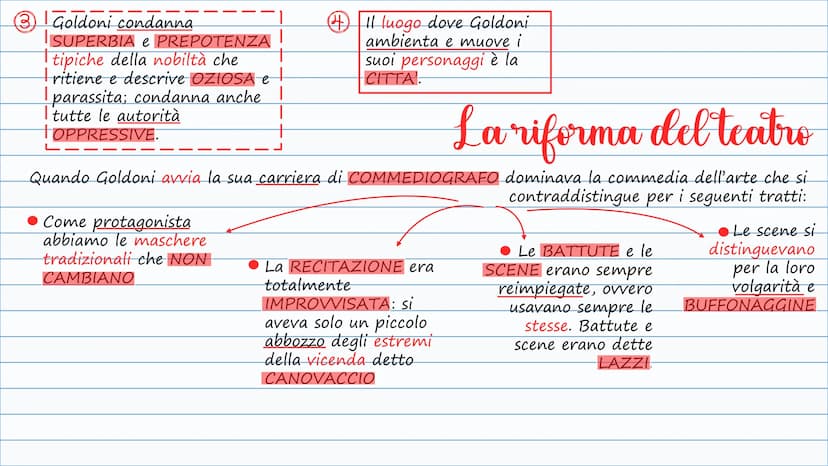 3 Goldoni condanna
SUPERBIA e PREPOTENZA
tipiche della nobiltà che
ritiene e descrive OZIOSA e
parassita; condanna anche
tutte le autorità
OPPRESSIVE.
4 Il luogo dove Goldoni
ambienta e muove i
suoi personaggi è la
CITTA'.
La riforma del teatro
Quando Goldoni avvia la sua carriera di COMMEDIOGRAFO dominava la commedia dell'arte che si
contraddistingue per i seguenti tratti:
Come protagonista
abbiamo le maschere
tradizionali che NON
CAMBIANO
La RECITAZIONE era
totalmente
IMPROVVISATA: si
aveva solo un piccolo
abbozzo degli estremi
della vicenda detto
CANOVACCIO
Le BATTUTE e le
SCENE erano sempre
reimpiegate, ovvero
usavano sempre le
stesse. Battute e
scene erano dette
LAZZI.
Le scene si
distinguevano
per la loro
volgarità e
BUFFONAGGINE